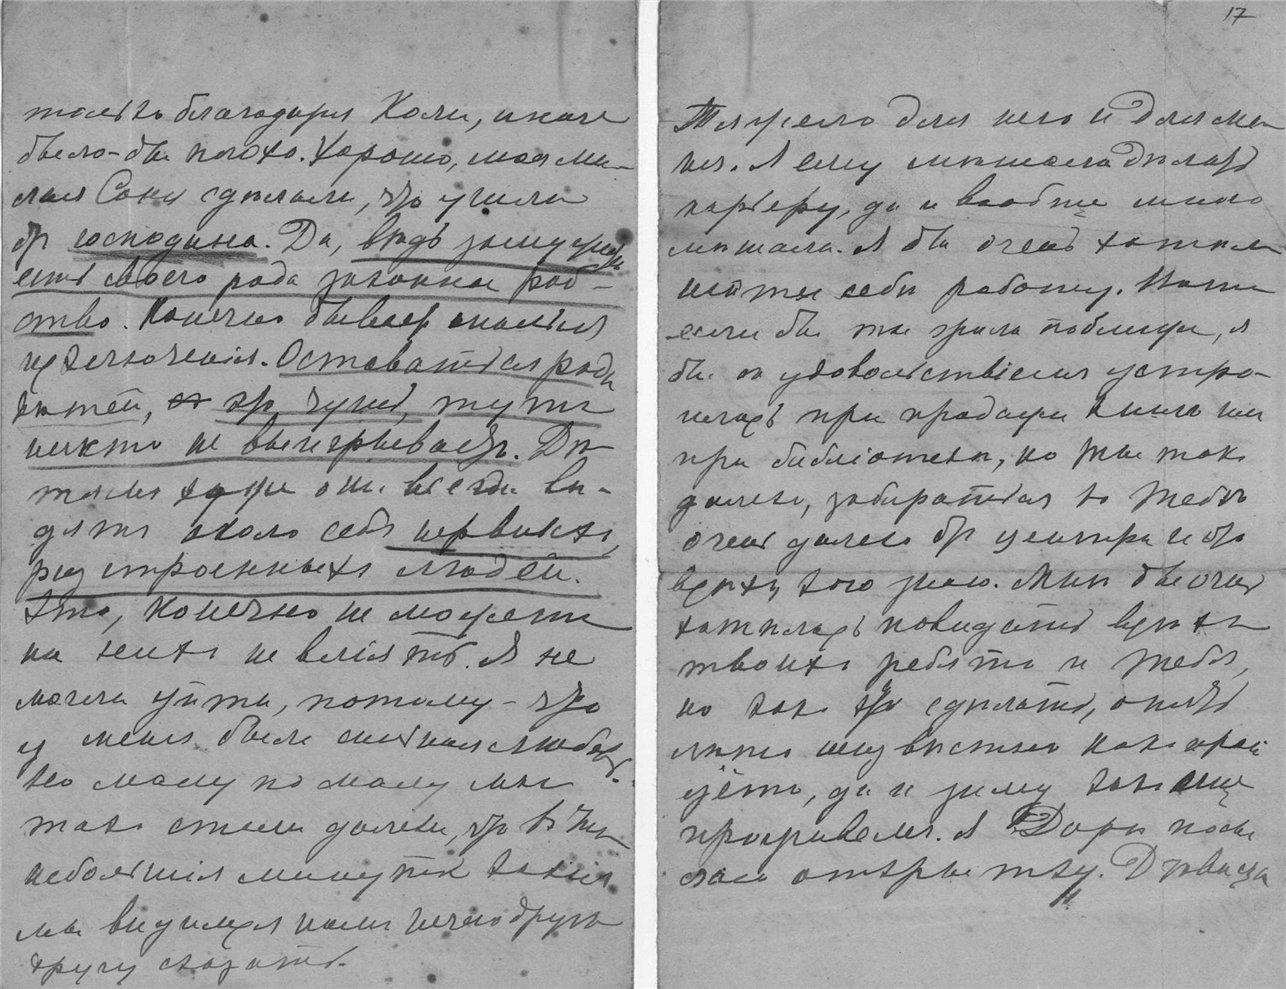 только благодаря Коли, иначе
было-бы плохо. Хорошо, моя ми-
лая Соня сделали, что ушли
от господина. Да, вѣдь замужем
есть своего рода законное раб-
ство. Конечно бывает
исключенія. Оставаться ради
дѣтей, это чушь, тутъ
никто не выигрываетъ. Дѣ-
тямъ хуже они всегда ви-
дятъ около себя нервныхъ,
разстроенныхъ людей.
Это, конечно не можетъ
на нихъ не вліять. Я не
могла уйти, потому-что
у меня была сильная любовь.
Но мало по малу мы
такъ стали далеки, что въ тѣ
небольшія минуты какія
мы видимся намъ нечего другъ
другу сказать.
17
Тяжело для него и для ме-
ня. Я ему мѣшала дѣлать
карьеру, да и вообще много
мѣшала. Я бы очень хотѣла
найти себѣ работу. Кати
если бы ты жила поближе, я
бы съ удовольствіемъ устро-
илась при продажи книгъ или
при библіотеки, но ты такъ
далеко, забираться къ тебѣ
очень далеко от центра и от
всѣхъ кого знаю. Мнѣ бы очень
хотѣлось повидать всѣхъ
твоихъ ребятъ и тебя,
но какъ это сдѣлать, опять
лѣто неизвѣстно какъ прой
дётъ, да и зиму какъ еще
проживемъ. Я Дори посы
лала открытку. Два раза